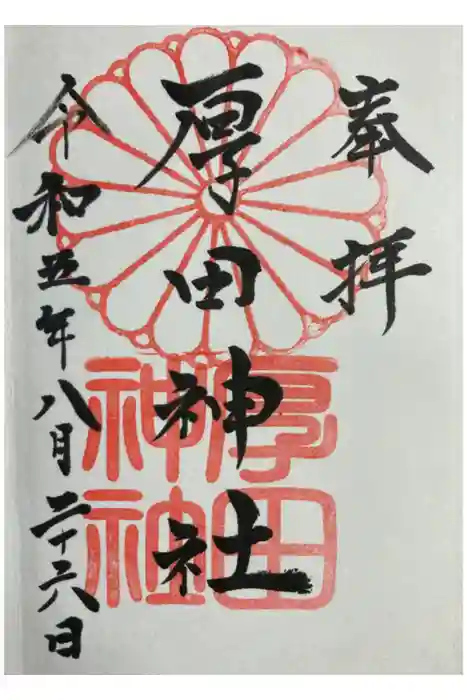 奉拝
厚田神社
令和五年八月二十六日
厚田
神社